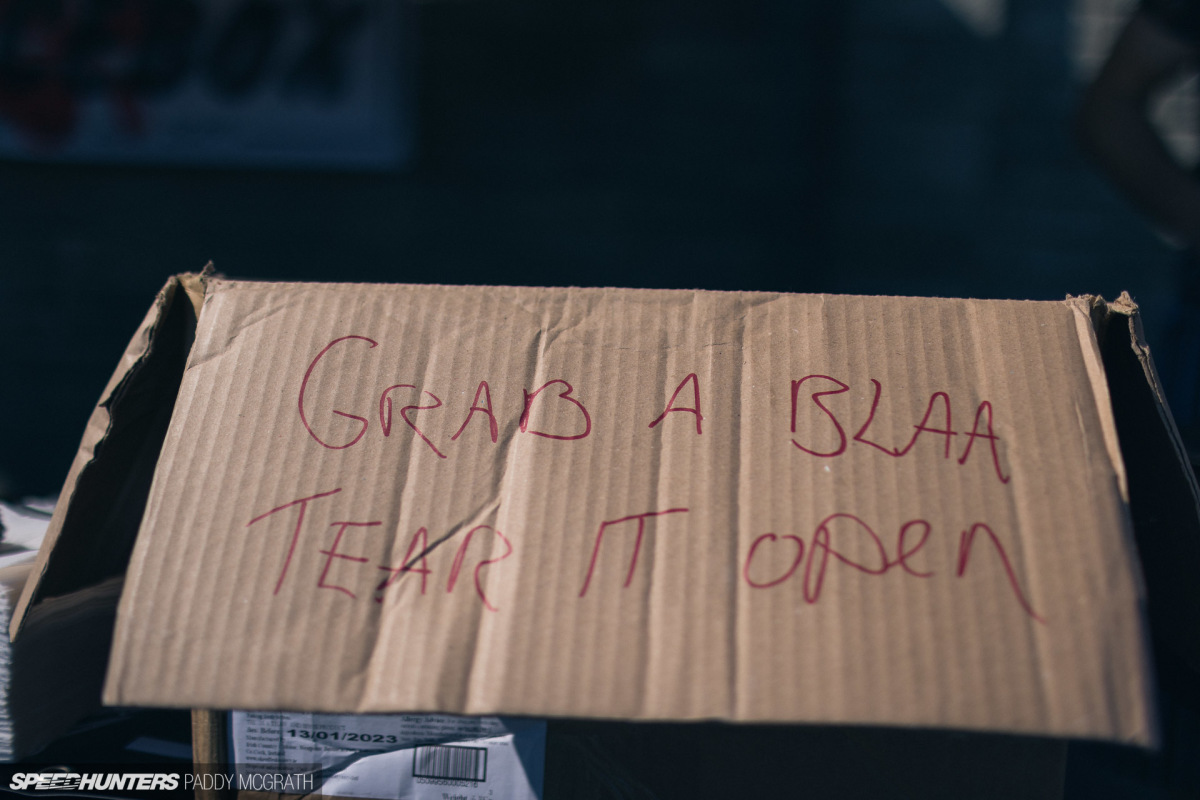 GRAB A BLAA
TEAR IT OPEN
13/01/2023
SPEEDHUNTERS PADDY MCGRATH